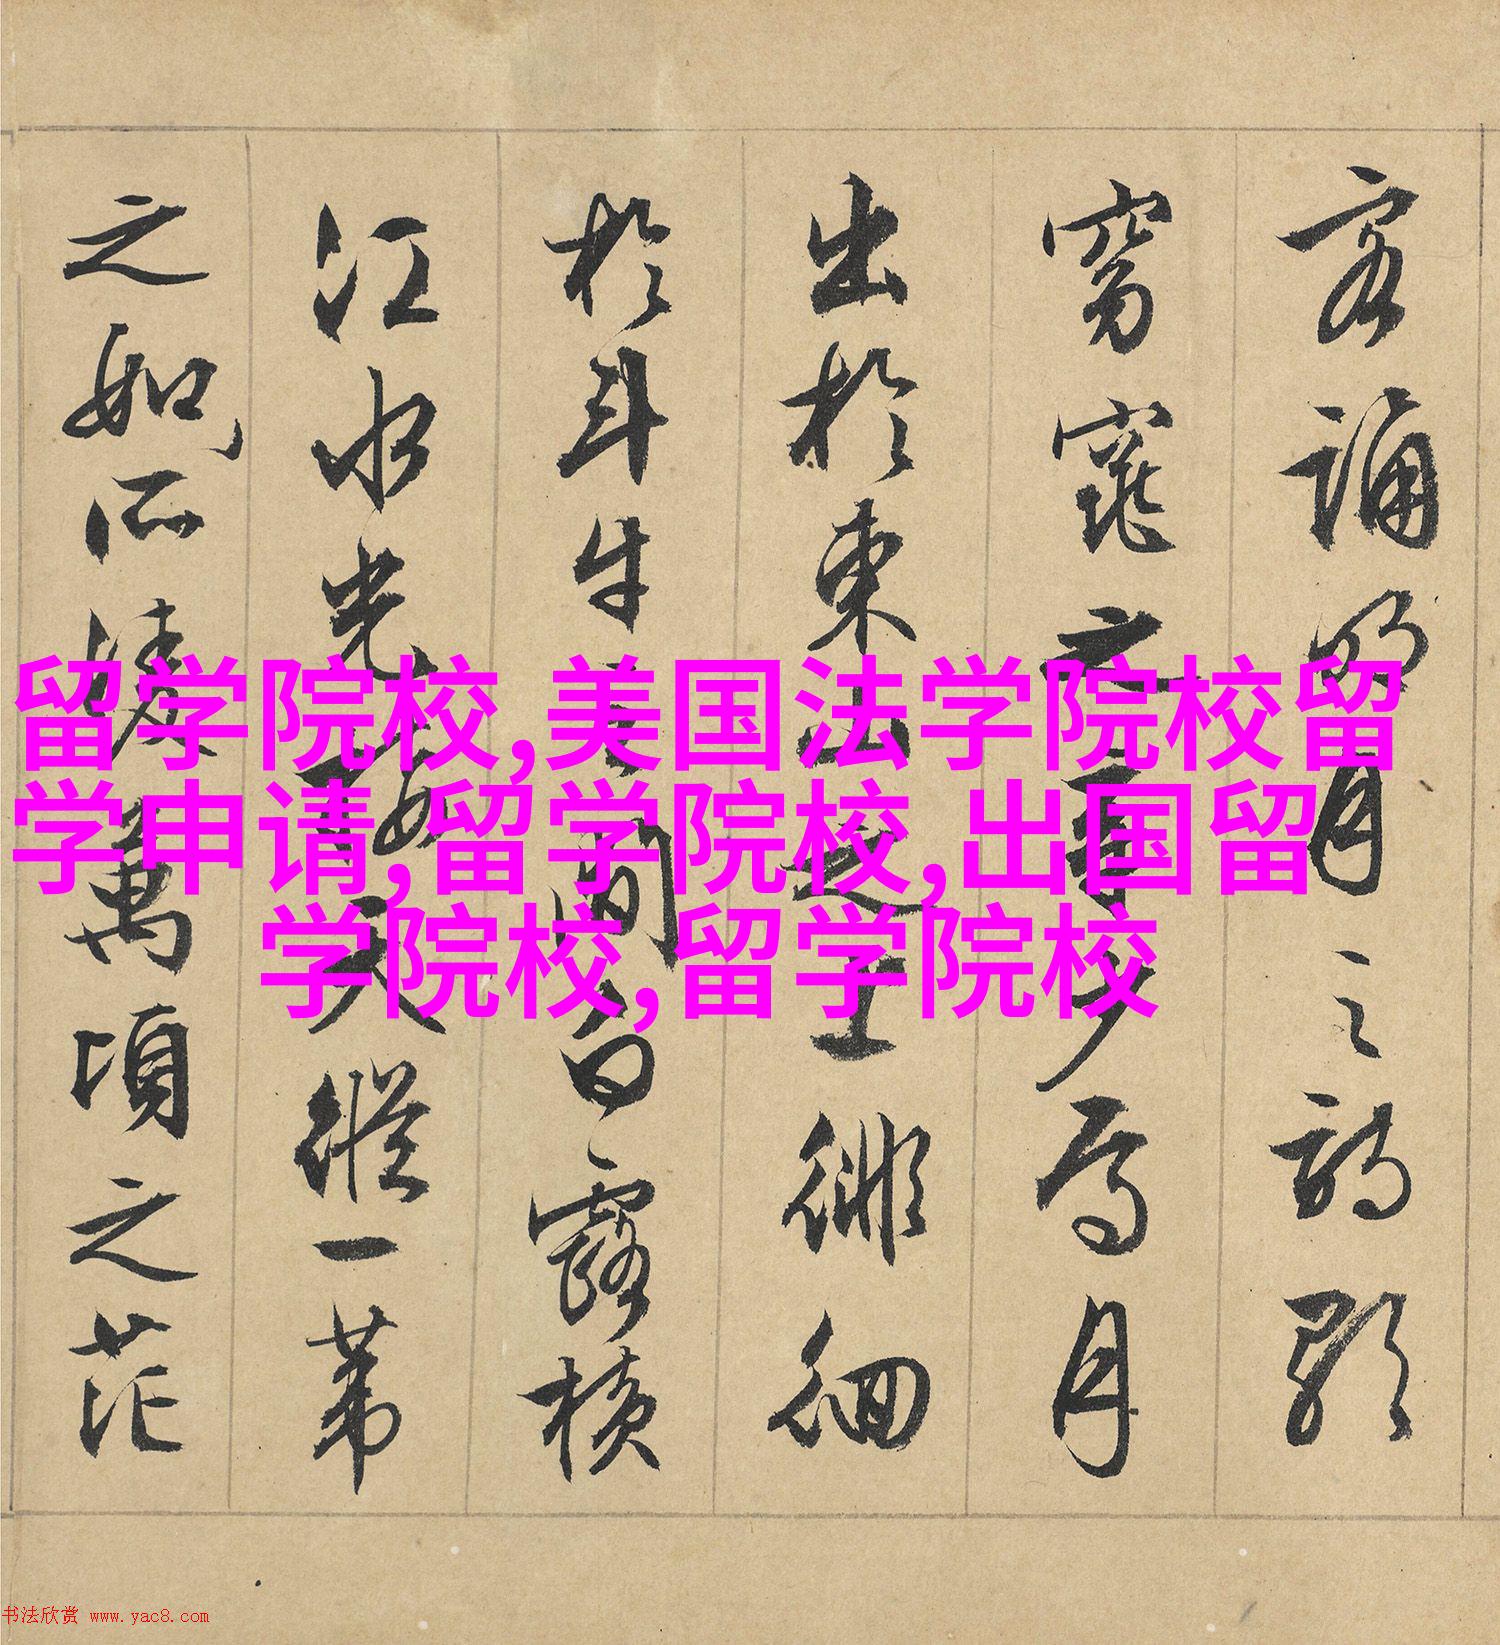 客誦明月之詩歌
窈窕之章少焉月
出於東山之上徘徊
於斗牛之間白露橫
江水光接天縱一葦
之如所凌萬頃之茫
留学院校,美国法学院校留
学申请,留学院校,出国留
学院校,留学院校
书法欣赏 www.yac8.com